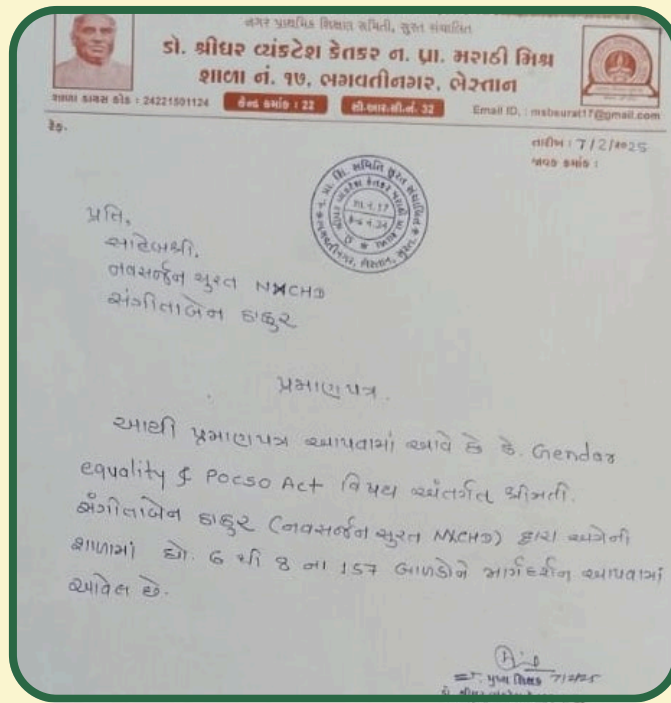 નગર પ્રાથમિક શિક્ષણ સમિતી, સુરત સંચાલિત
ડો. શ્રીધર વ્યંકટેશ કેતકર ન. પ્રા. મરાઠી મિશ્ર
શાળા નં. ૧૭, ભગવતીનગર, ભેસ્તાન
શાળા ડાયસ કોડ : 24221501124 કેન્દ્ર ક્રમાંક : 22 સી.આર.સી.નં. 32 Email ID, : msbsurat17@gmail.com
રેફ.
તારીખ : 7/2/2025
જાવક ક્રમાંક :
શા.નં.17
પ્રતિ,
સાહેબશ્રી,
નવસર્જન સુરત NMCHD
સંગીતાબેન ઠાકુર
પ્રમાણપત્ર.
આથી પ્રમાણપત્ર આપવામાં આવે છે કે. Gendar
equality & POCSO Act વિષય અંતર્ગત શ્રીમતી.
સંગીતાબેન ઠાકુર (નવસર્જન સુરત NMCHD) દ્વારા અત્રેની
શાળામાં ધો. 6 થી 8 ના 157 બાળકોને માર્ગદર્શન આપવામાં
આવેલ છે.
મુખ્ય શિક્ષક 7/2/25